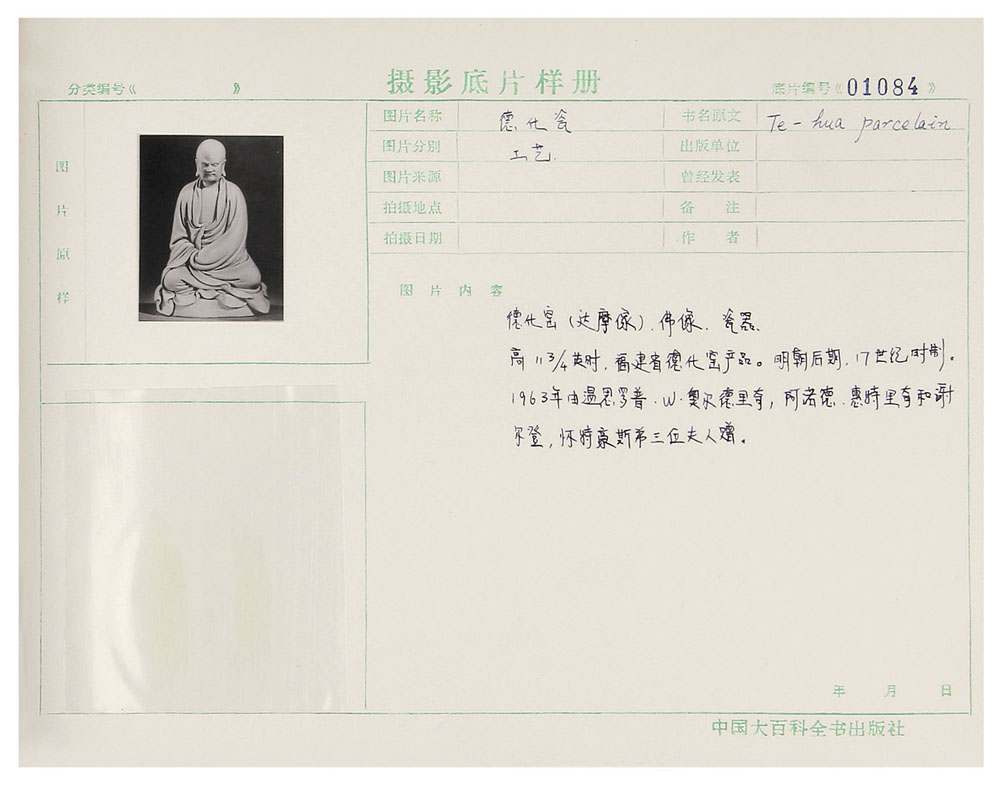 摄影底片样册
分类编号《 》
底片编号《01084》
图片原样
图片名称 德化瓷 书名原文 Te-hua parcelain
图片分别 工艺. 出版单位
图片来源 曾经发表
拍摄地点 备 注
拍摄日期 作 者
图片内容
德化窑(达摩像).佛像.瓷器.
高11 3/4英吋,福建省德化窑产品。明朝后期.17世纪时制。
1963年由温恩罗普.W.奥尔德里奇,阿诺德.惠特里奇和谢
尔登,怀特豪斯弟三位夫人赠。
年 月 日
中国大百科全书出版社